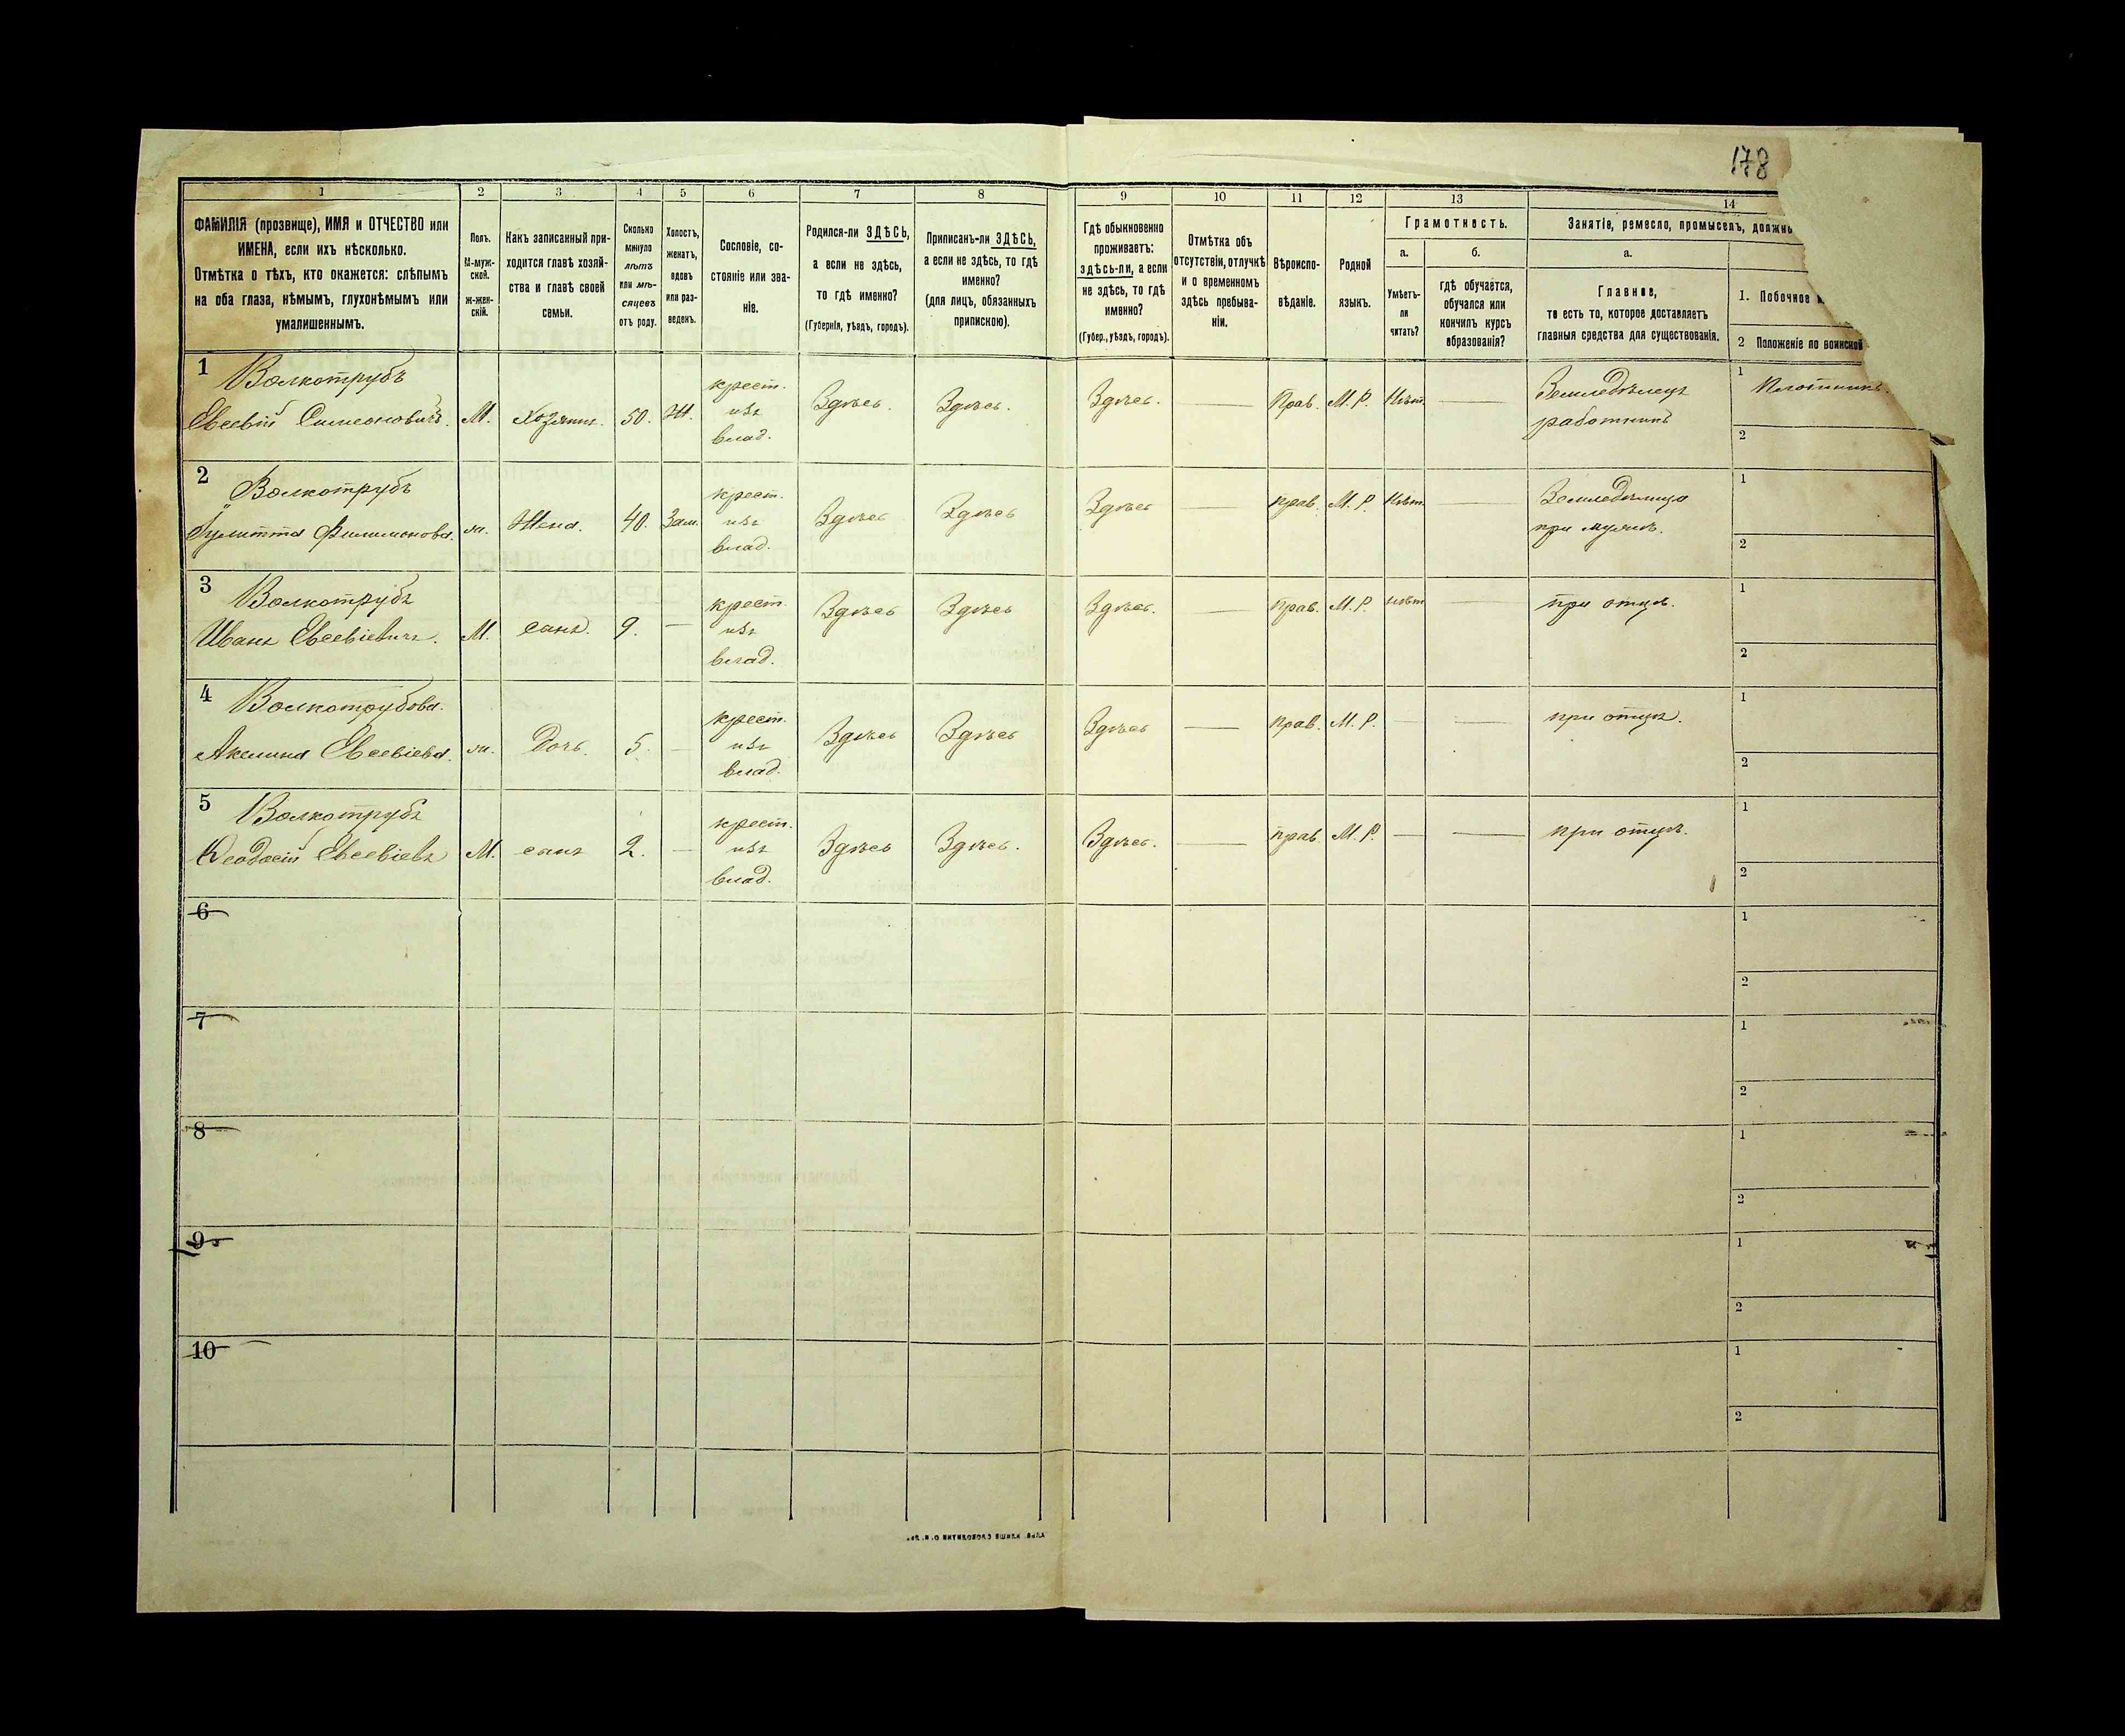 178
1 2 3 4 5 6 7 8 9 10 11 12 13 14
ФАМИЛІЯ (прозвище), ИМЯ и ОТЧЕСТВО или
ИМЕНА, если ихъ нѣсколько.
Отмѣтка о тѣхъ, кто окажется: слѣпымъ
на оба глаза, нѣмымъ, глухонѣмымъ или
умалишеннымъ.
Полъ.
М-муж-
ской.
ж-жен-
скій.
Какъ записанный при-
ходится главѣ хозяй-
ства и главѣ своей
семьи.
Сколько
минуло
лѣтъ
или мѣ-
сяцевъ
отъ роду.
Холостъ,
женатъ,
вдовъ
или раз-
веденъ.
Сословіе, со-
стояніе или зва-
ніе.
Родился-ли ЗДѢСЬ,
а если не здѣсь,
то гдѣ именно?
(Губернія, уѣздъ, городъ).
Приписанъ-ли ЗДѢСЬ,
а если не здѣсь, то гдѣ
именно?
(для лицъ, обязанныхъ
припискою).
Гдѣ обыкновенно
проживаетъ:
здѣсь-ли, а если
не здѣсь, то гдѣ
именно?
(Губер., уѣздъ, городъ).
Отмѣтка объ
отсутствіи, отлучкѣ
и о временномъ
здѣсь пребыва-
ніи.
Вѣроиспо-
вѣданіе.
Родной
языкъ.
Грамотность.
а.
Умѣетъ-
ли
читать?
б.
гдѣ обучается,
обучался или
кончилъ курсъ
образованія?
Занятіе, ремесло, промыселъ, должн
а.
Главное,
то есть то, которое доставляетъ
главныя средства для существованія.
1. Побочное
2 Положеніе по воинской
1 Волкотрубъ
Евсевій Симеоновичъ. М. Хозяинъ. 50. Ж. крест. изъ влад. Здѣсь. Здѣсь. Здѣсь. — Прав. М. Р. Нѣт. — Земледѣлецъ работникъ 1 Плотникъ.
2
2 Волкотрубъ
Іулитта Филимонова. ж. Жена. 40. Зам. крест. изъ влад. Здѣсь Здѣсь Здѣсь — прав. М. Р. Нѣт. — Земледѣлица при мужѣ. 1
2
3 Волкотрубъ
Иванъ Евсевіевичъ. М. сынъ. 9. — крест. изъ влад. Здѣсь Здѣсь Здѣсь. — Прав. М. Р. нѣт — при отцѣ. 1
2
4 Волкотрубова.
Акилина Евсевіева. ж. Дочь. 5. — крест. изъ влад. Здѣсь Здѣсь Здѣсь — прав. М. Р. — — при отцѣ. 1
2
5 Волкотрубъ
Ѳеодосій Евсевіевъ М. сынъ 2. — крест. изъ влад. Здѣсь Здѣсь. Здѣсь. — прав. М. Р. — — при отцѣ. 1
2
6 1
2
7 1
2
8 1
2
9 1
2
10 1
2